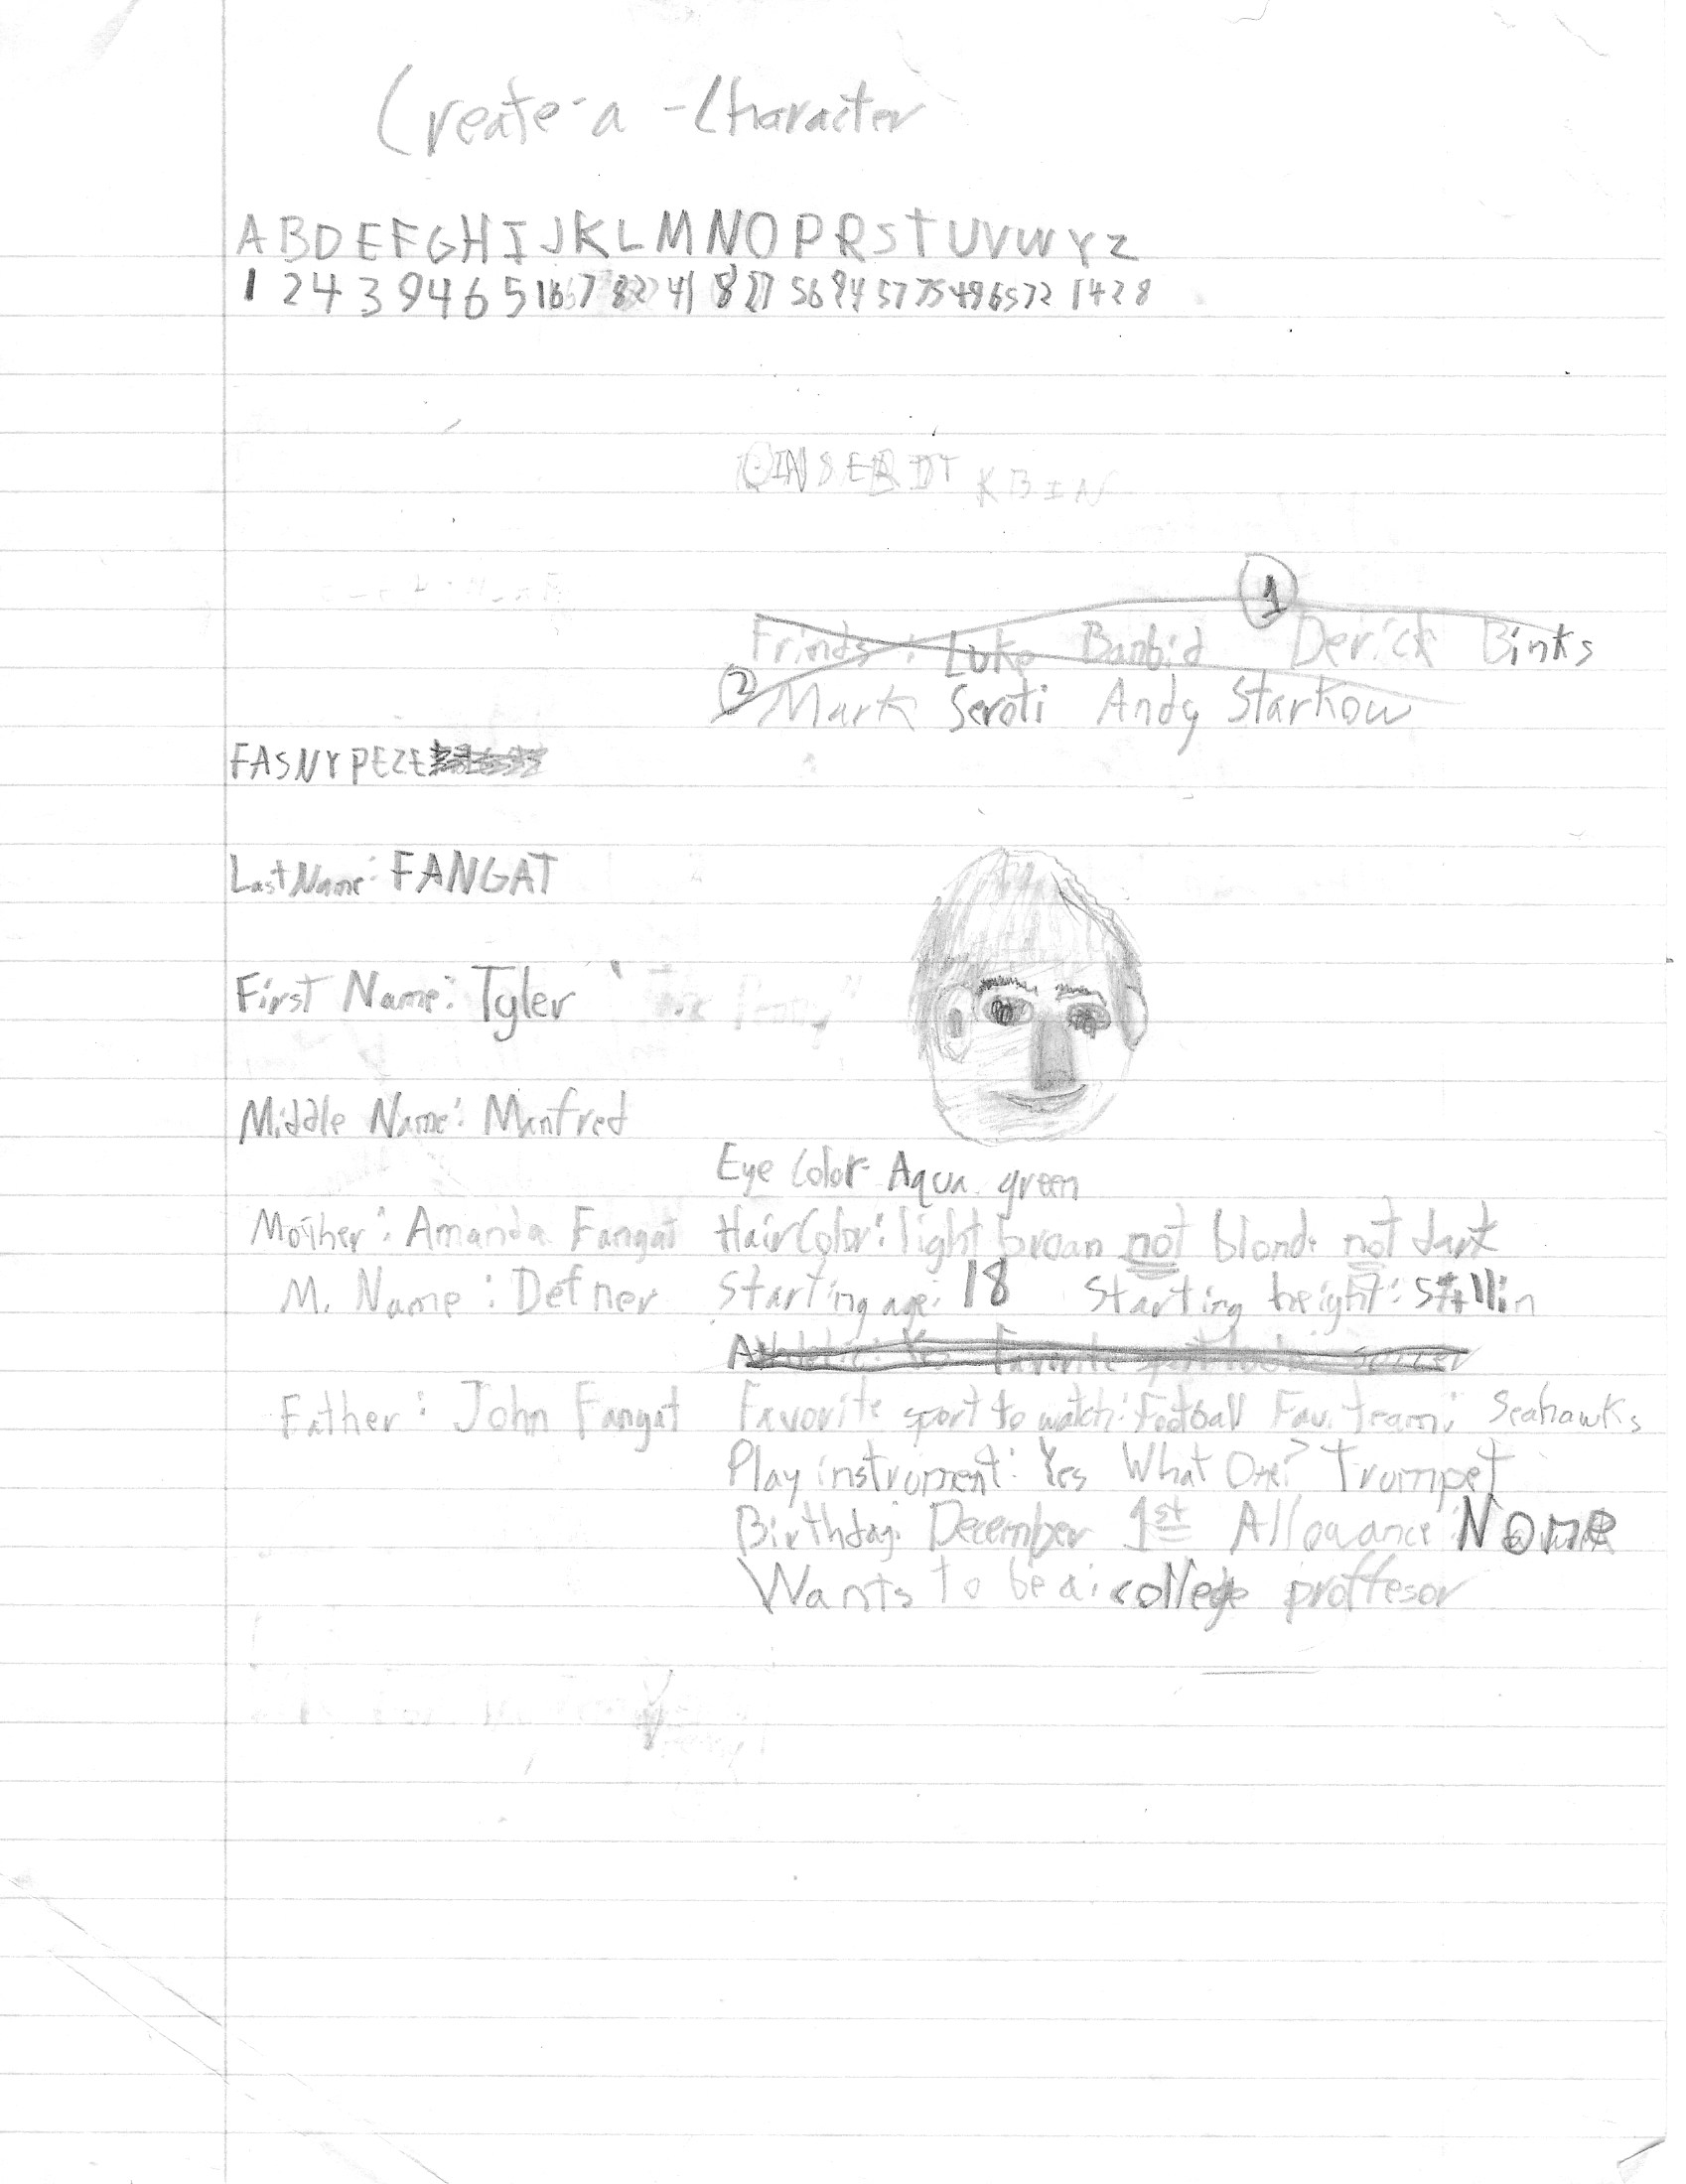 Create-a-Character
A B D E F G H I J K L M N O P R S T U V W Y Z
1 2 4 3 9 4 6 5 16 7 82 41 8 27 56 94 57 75 49 65 72 14 28
KBIN
1
Frinds: Luke Banbid Derick Binks
2 Mark Seroti Andy Starkow
FASNYPEZE
Last Name: FANGAT
First Name: Tyler
Middle Name: Manfred
Eye Color- Aqua green
Mother: Amanda Fangat Hair Color: light broan not blond. not dark
M. Name: Defner Starting age: 18 Starting height: 5ft 11in
Father: John Fangat Favorite sport to watch: Football Fav. team: Seahawks
Play instroment: Yes What One? Trumpet
Birthday: December 1st Allowance: None
Wants to be a: college proffesor